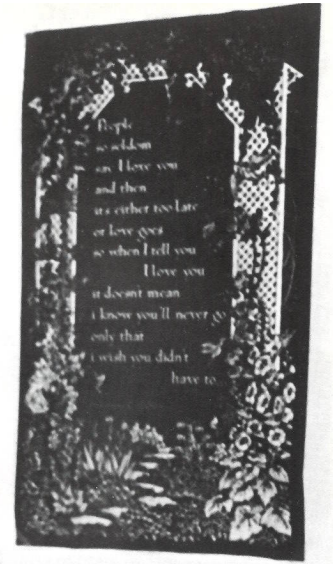 People
so seldom
say I love you
and then
it's either too late
or love goes
so when I tell you
I love you
it doesn't mean
i know you'll never go
only that
i wish you didn't
have to